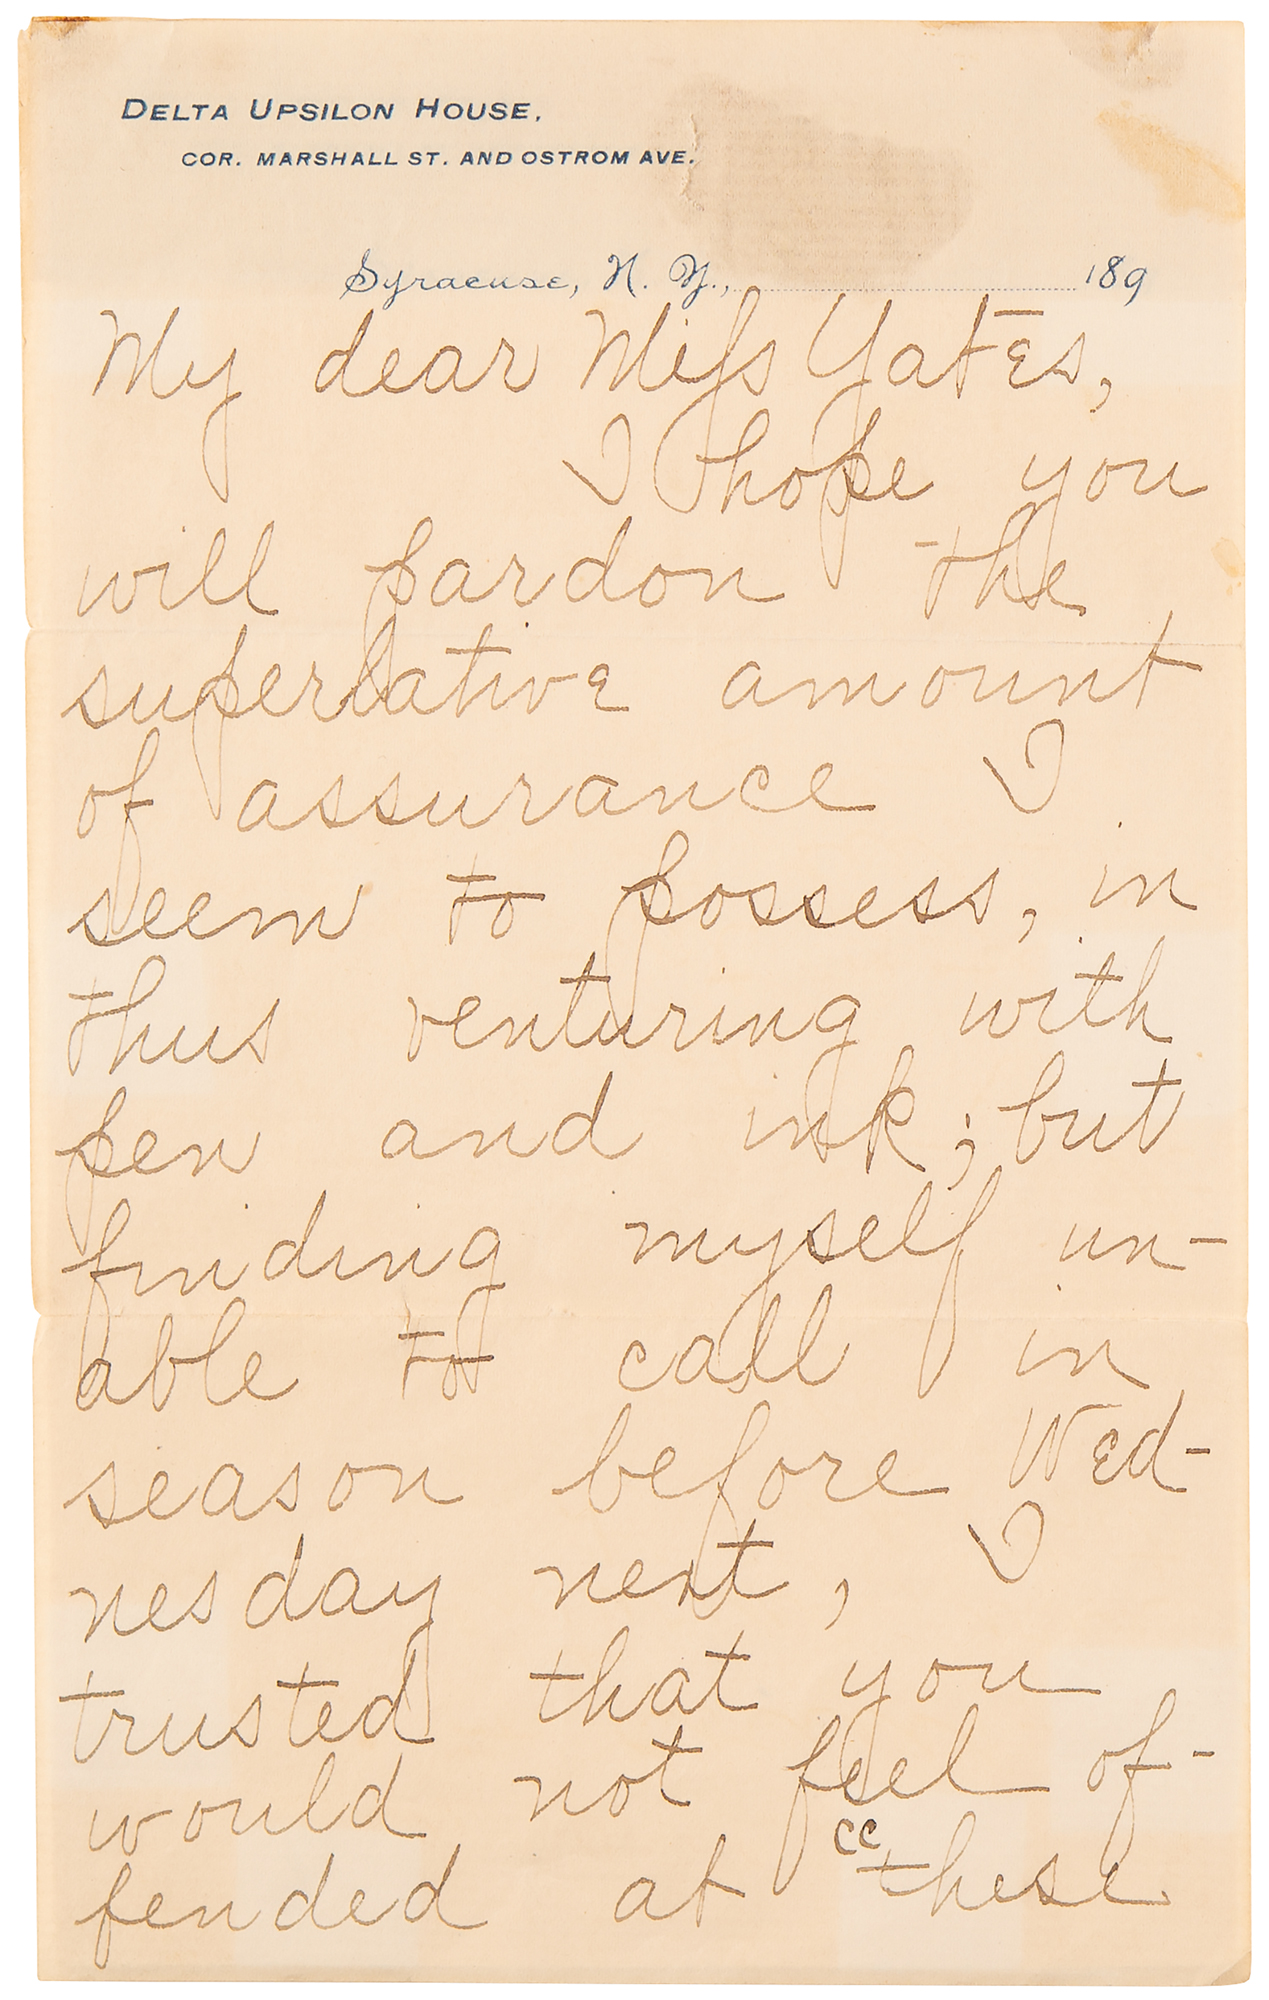 DELTA UPSILON HOUSE,
COR. MARSHALL ST. AND OSTROM AVE.
Syracuse, N. Y., 189
My dear Miſs Yates,
I hope you
will pardon the
superlative amount
of assurance I
seem to possess, in
thus venturing with
pen and ink; but
finding myself un-
able to call in
season before Wed-
nesday next, I
trusted that you
would not feel of-
fended at “these